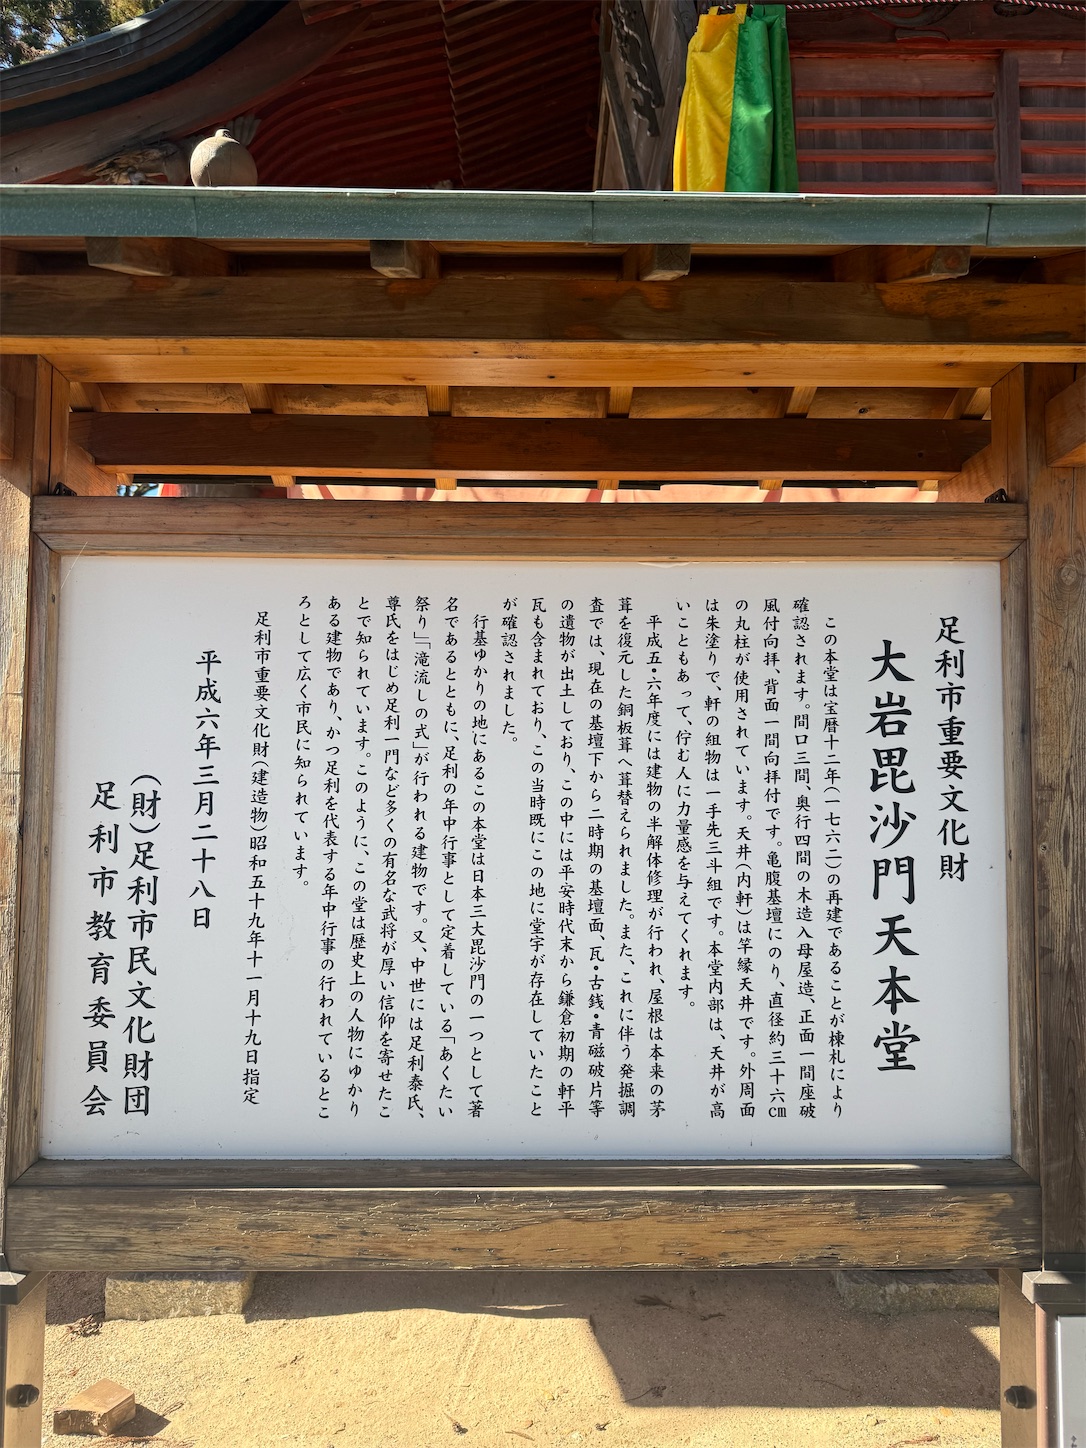 足利市重要文化財
大岩毘沙門天本堂
この本堂は宝暦十二年(一七六二)の再建であることが棟札により
確認されます。間口三間、奥行四間の木造入母屋造、正面一間座破
風付向拝、背面一間向拝付です。亀腹基壇にのり、直径約三十六cm
の丸柱が使用されています。天井(内軒)は竿縁天井です。外周面
は朱塗りで、軒の組物は一手先三斗組です。本堂内部は、天井が高
いこともあって、佇む人に力量感を与えてくれます。
平成五・六年度には建物の半解体修理が行われ、屋根は本来の茅
葺を復元した銅板葺へ葺替えられました。また、これに伴う発掘調
査では、現在の基壇下から二時期の基壇面、瓦・古銭・青磁破片等
の遺物が出土しており、この中には平安時代末から鎌倉初期の軒平
瓦も含まれており、この当時既にこの地に堂宇が存在していたこと
が確認されました。
行基ゆかりの地にあるこの本堂は日本三大毘沙門の一つとして著
名であるとともに、足利の年中行事として定着している「あくたい
祭り」「滝流しの式」が行われる建物です。又、中世には足利泰氏、
尊氏をはじめ足利一門など多くの有名な武将が厚い信仰を寄せたこ
とで知られています。このように、この堂は歴史上の人物にゆかり
ある建物であり、かつ足利を代表する年中行事の行われているとこ
ろとして広く市民に知られています。
足利市重要文化財(建造物)昭和五十九年十一月十九日指定
平成六年三月二十八日
(財)足利市民文化財団
足利市教育委員会